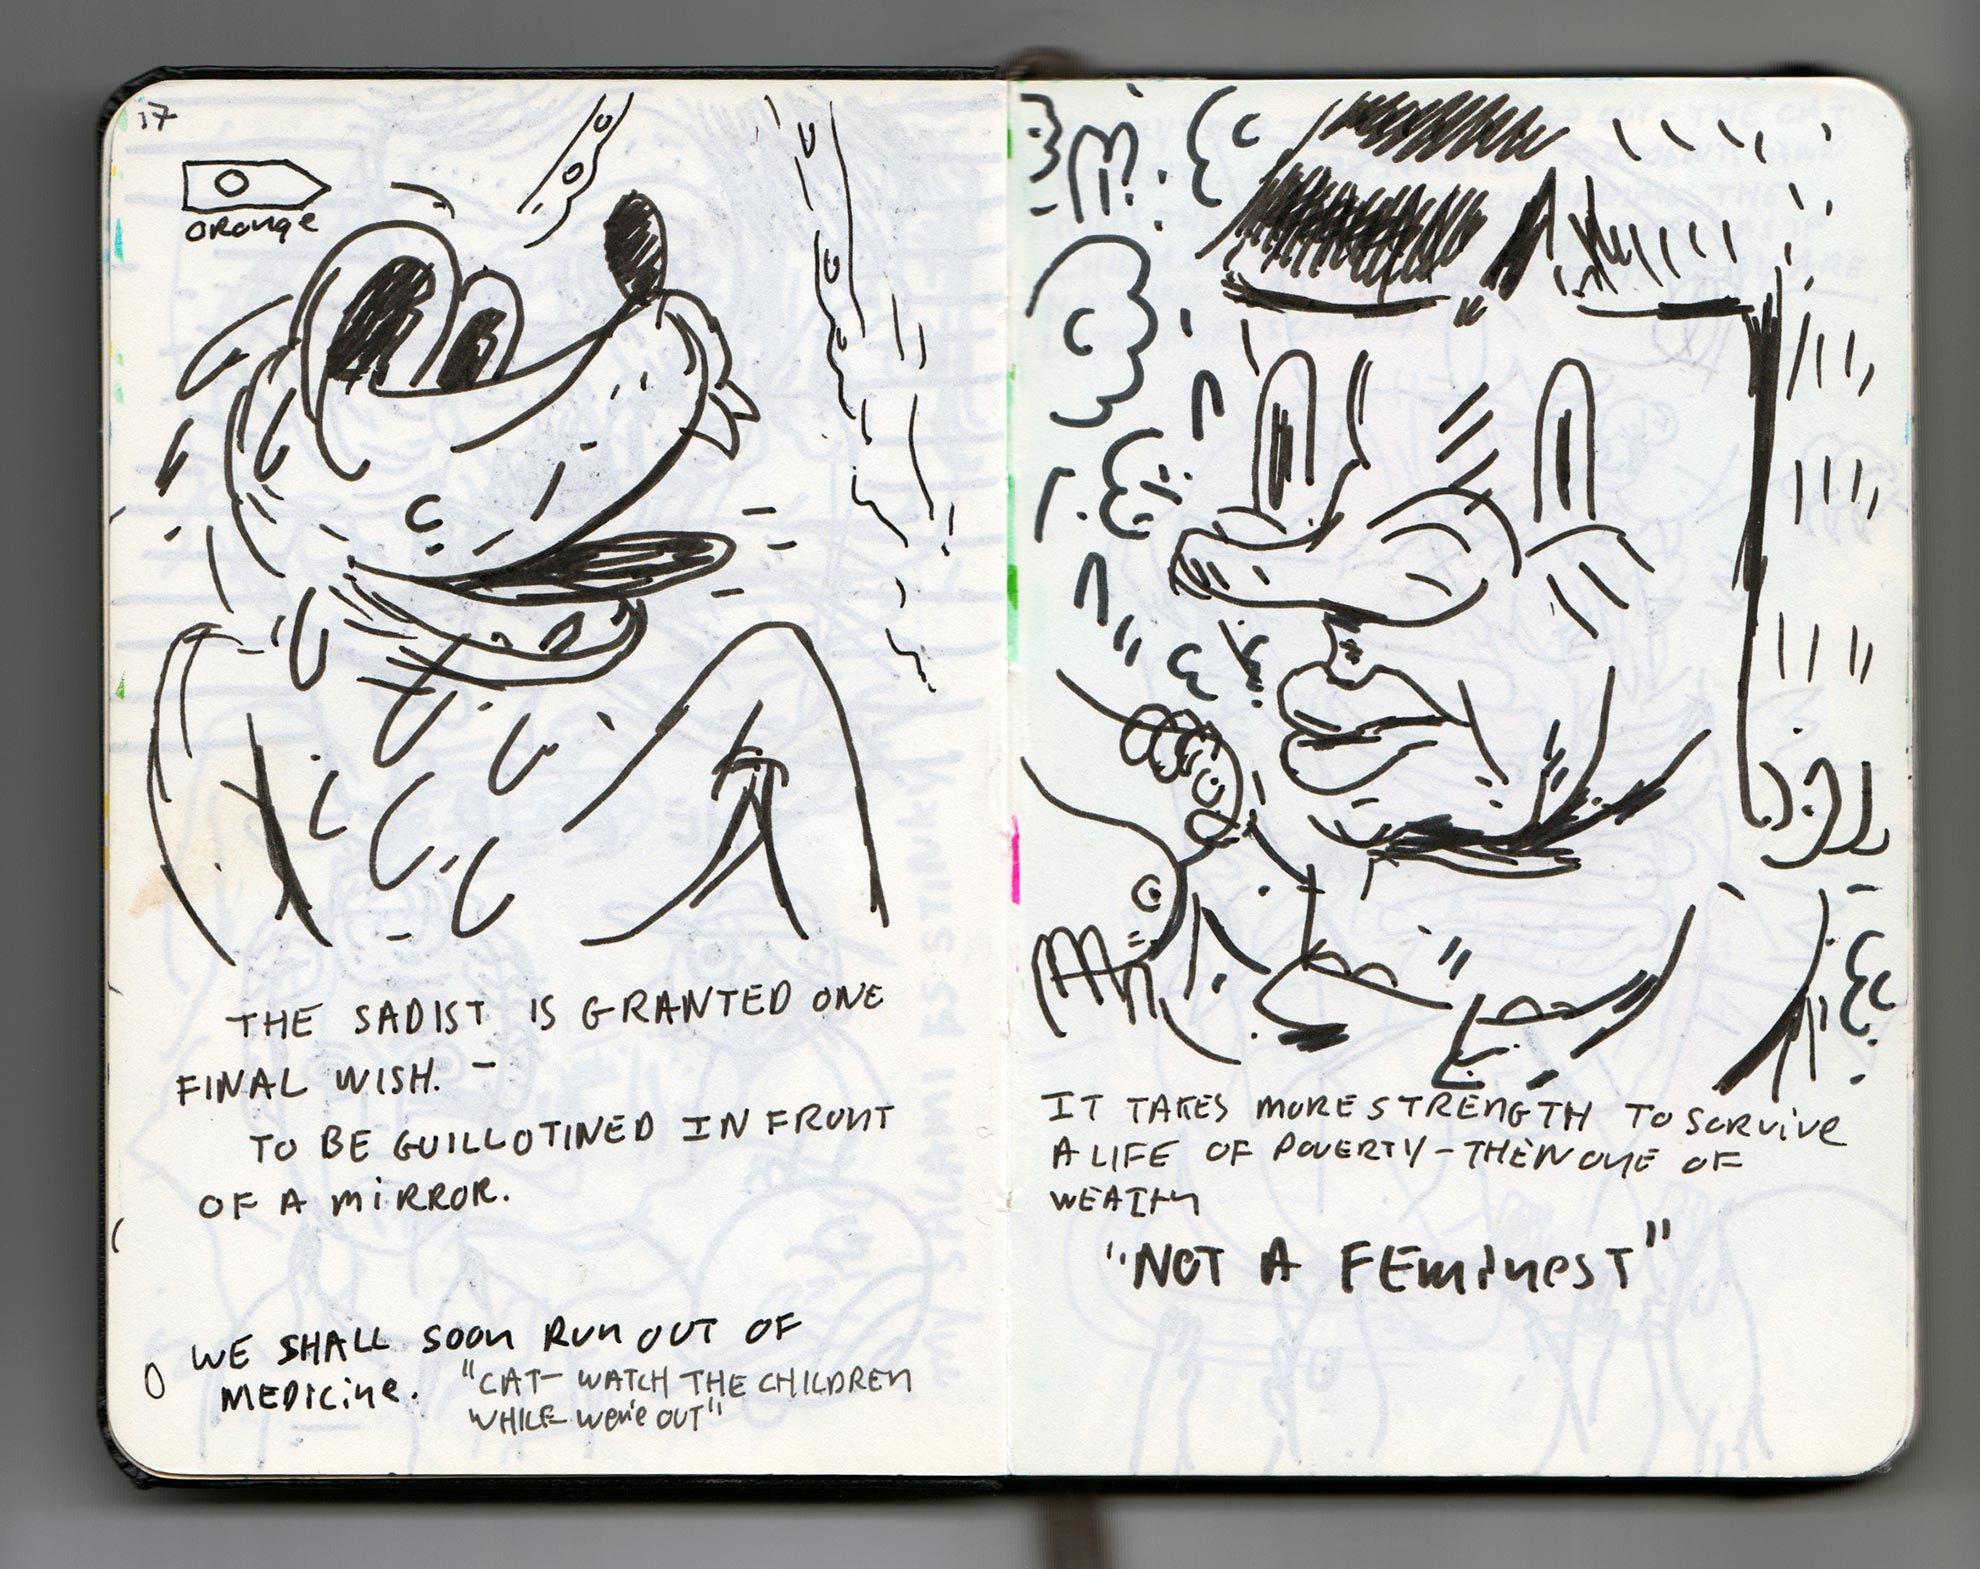 17
orange
THE SADIST IS GRANTED ONE
FINAL WISH. –
TO BE GUILLOTINED IN FRONT
OF A MIRROR.
WE SHALL SOON RUN OUT OF
MEDICINE.
"CAT- WATCH THE CHILDREN
WHILE WE'RE OUT"
IT TAKES MORE STRENGTH TO SURVIVE
A LIFE OF POVERTY - THEN ONE OF
WEALTH
"NOT A FEMINEST"